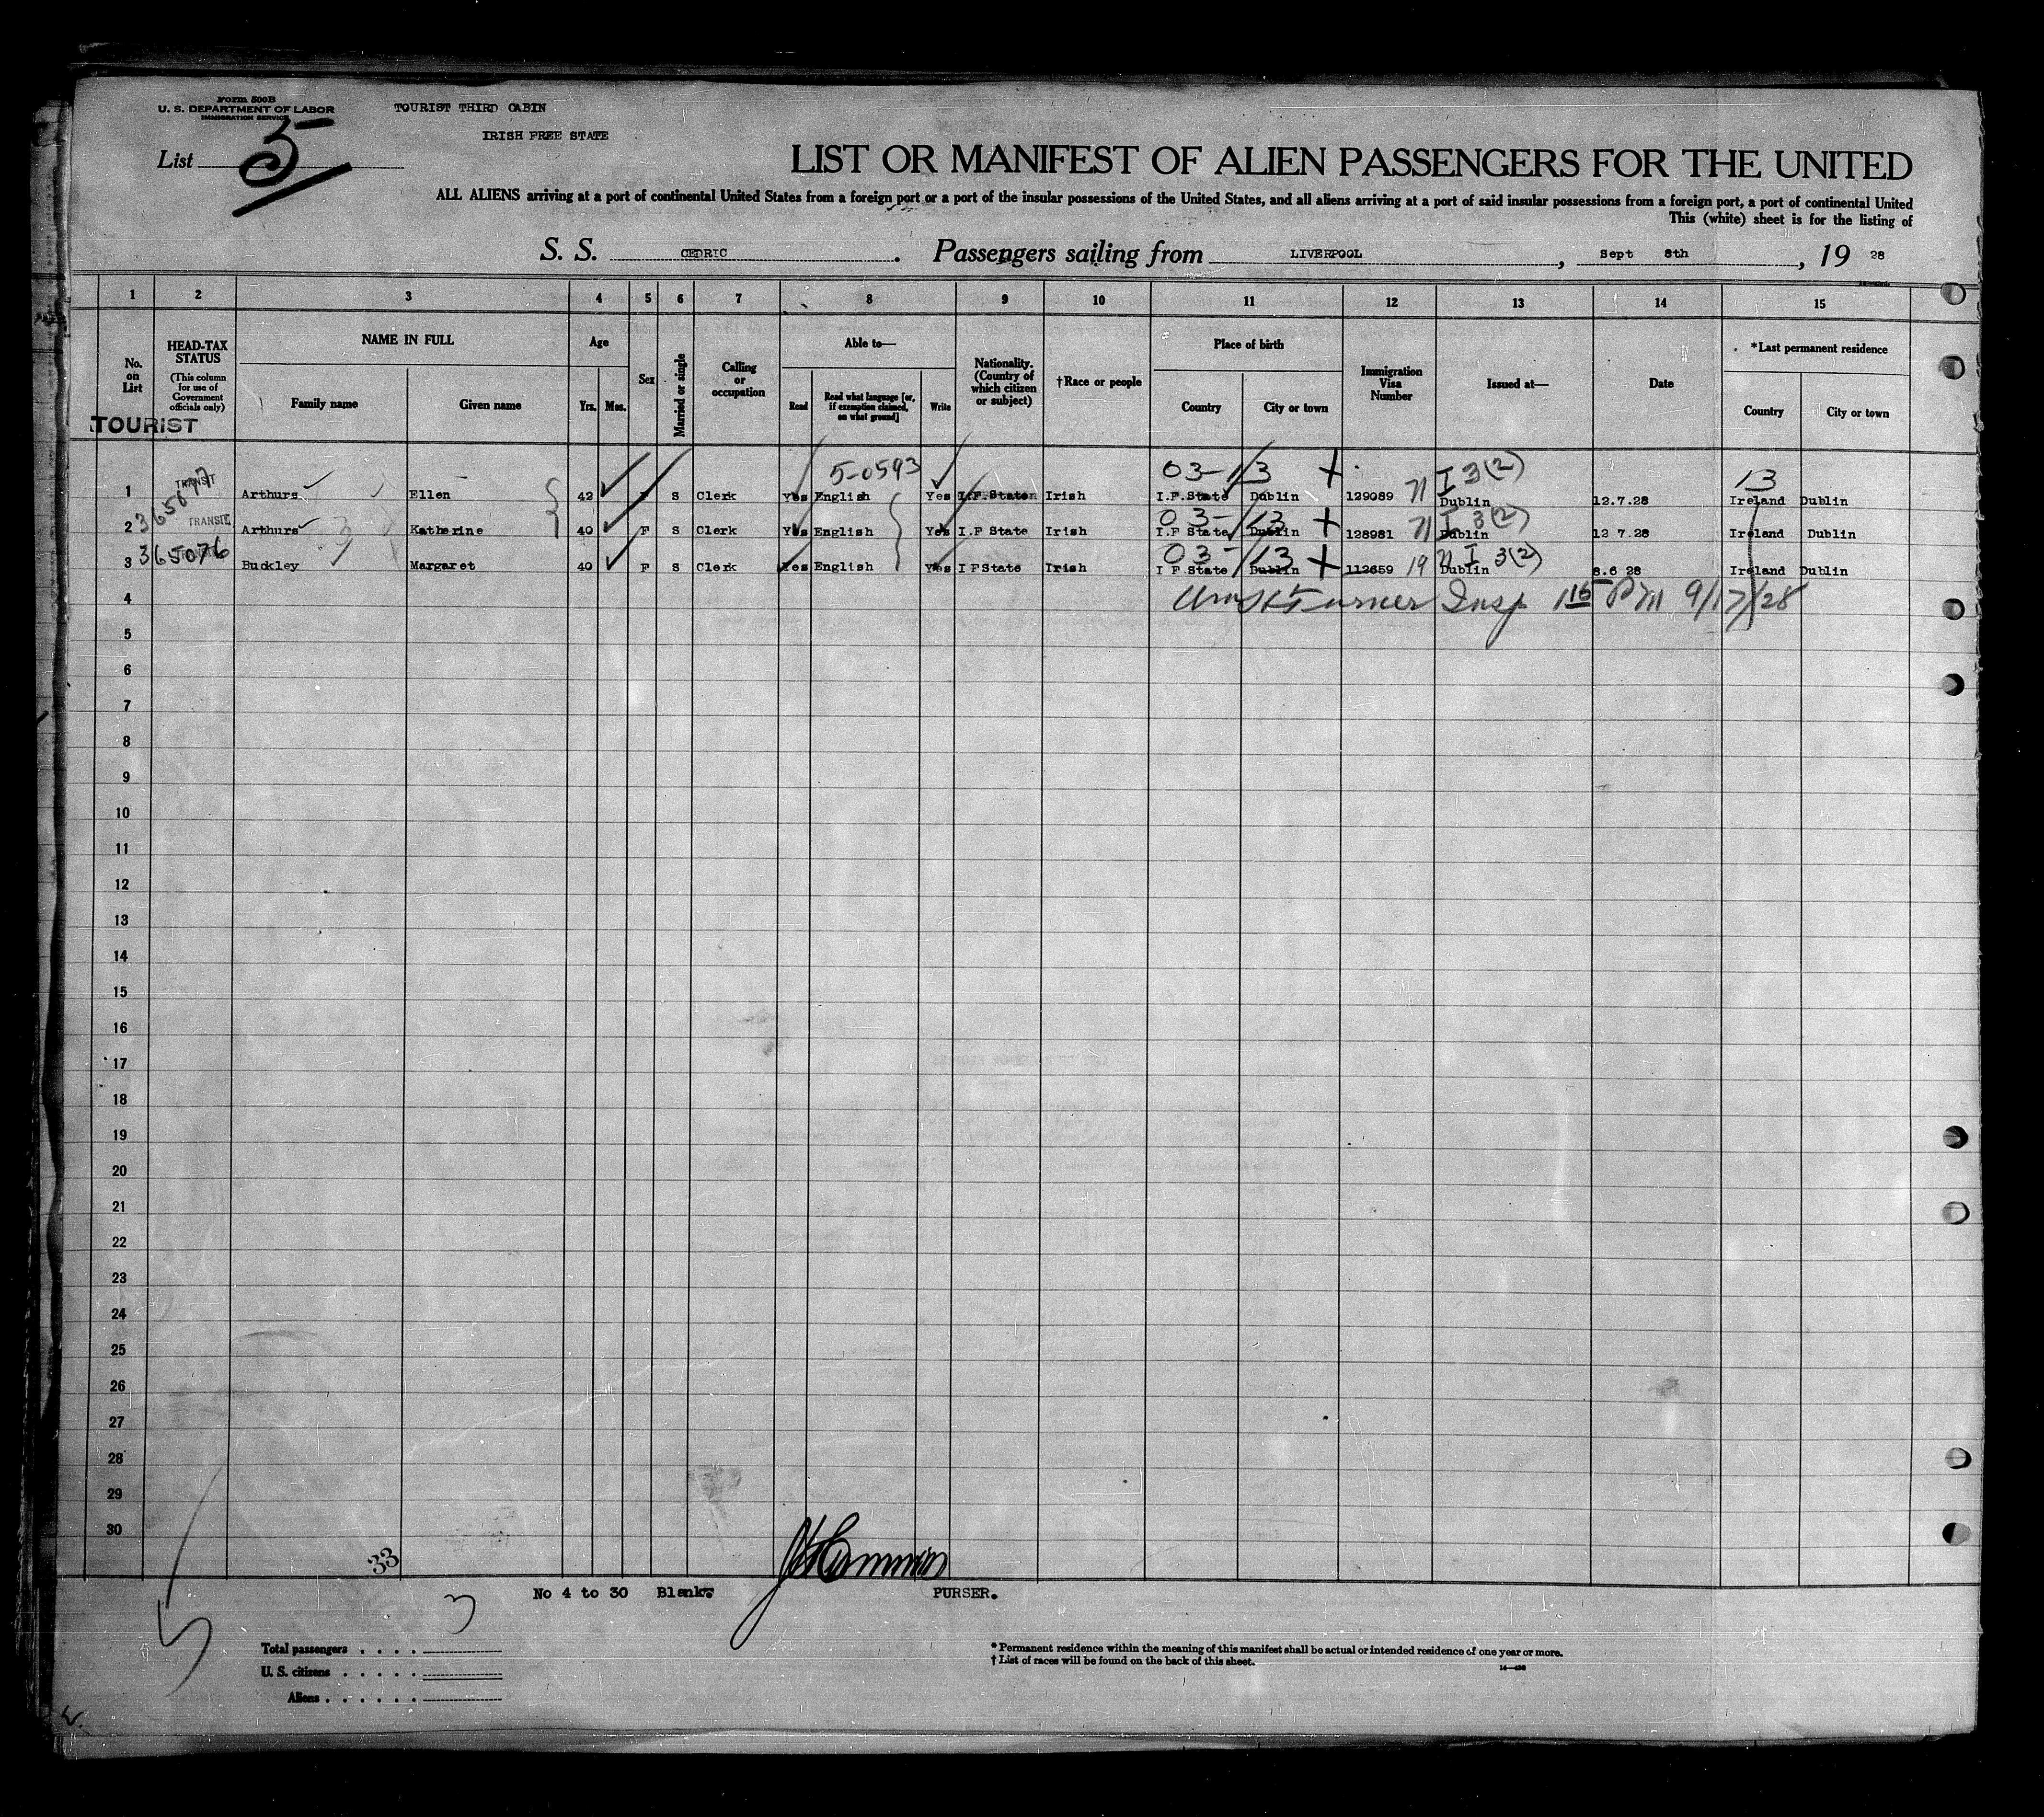 Form 500B
U. S. DEPARTMENT OF LABOR
IMMIGRATION SERVICE
TOURIST THIRD CABIN
IRISH FREE STATE
List 5
LIST OR MANIFEST OF ALIEN PASSENGERS FOR THE UNITED
ALL ALIENS arriving at a port of continental United States from a foreign port or a port of the insular possessions of the United States, and all aliens arriving at a port of said insular possessions from a foreign port, a port of continental United
This (white) sheet is for the listing of
S. S. CEDRIC. Passengers sailing from LIVERPOOL, Sept 8th, 19 28
1 2 3 4 5 6 7 8 9 10 11 12 13 14 15
No. on List
HEAD-TAX STATUS
(This column for use of Government officials only)
NAME IN FULL
Family name Given name
Age
Yrs. Mos.
Sex
Married or single
Calling or occupation
Able to—
Read
Read what language [or, if exemption claimed, on what ground]
Write
Nationality. (Country of which citizen or subject)
†Race or people
Place of birth
Country City or town
Immigration Visa Number
Issued at—
Date
*Last permanent residence
Country City or town
TOURIST
5-0593 03-13 + I 3(2) 13
1 TRANSIT Arthurs Ellen 42 F S Clerk Yes English Yes I.F.State Irish I.F.State Dublin 129089 Dublin 12.7.28 Ireland Dublin
03-13 + I 3(2)
2 TRANSIT Arthurs Katherine 40 F S Clerk Yes English Yes I.F State Irish I.F State Dublin 128981 Dublin 12 7.28 Ireland Dublin
365076 03-13 + I 3(2)
3 Buckley Margaret 40 F S Clerk Yes English Yes I FState Irish I F.State Dublin 112659 19 Dublin 8.6 28 Ireland Dublin
4 Turner Insp 1 15 PM 9/17/28
5
6
7
8
9
10
11
12
13
14
15
16
17
18
19
20
21
22
23
24
25
26
27
28
29
30
33
No 4 to 30 Blank. PURSER.
3
Total passengers . . . .
U. S. citizens . . . . .
Aliens . . . . . .
* Permanent residence within the meaning of this manifest shall be actual or intended residence of one year or more.
† List of races will be found on the back of this sheet.